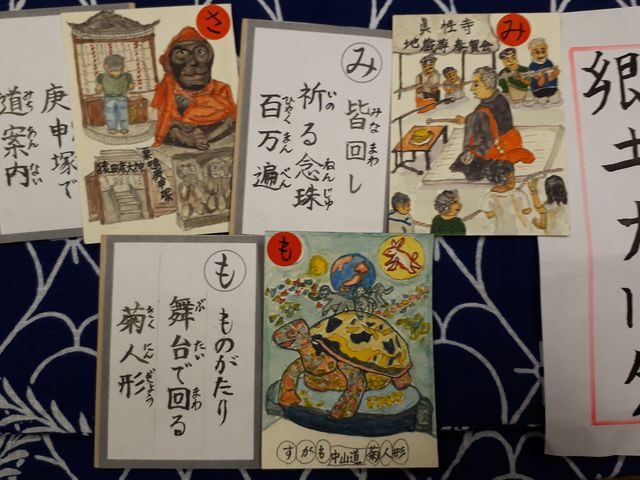 庚申塚で
道案内
さ
猿田彦大神
巣鴨庚申塚
み
皆回し
祈る念珠
百万遍
み
眞性寺
地蔵尊奉賛会
郷土カータ
も
ものがたり
舞台で回る
菊人形
も
すがも中山道菊人形